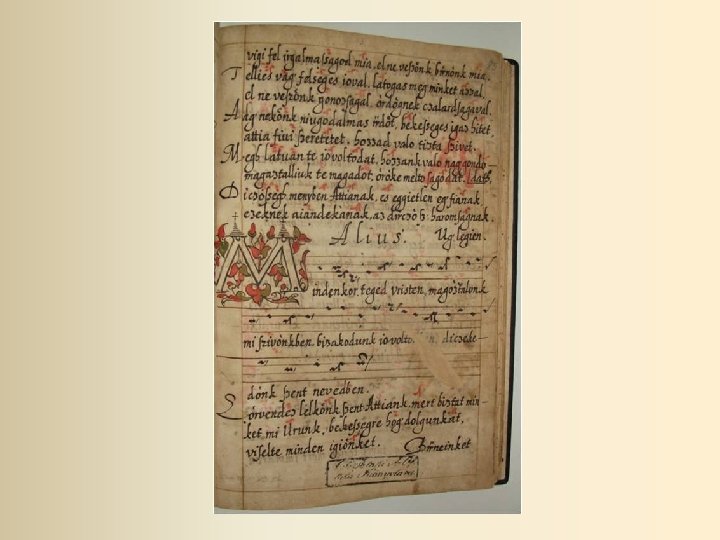 vigi fel irgalmasságod mia, el ne veszönk bűnönk mia.
Tellies vag felseges ioval, latogas meg minket azzal,
el ne veszönk gonoszsagal, ördögnek czalardsagaval.
Ag nekönk niugodalmas üdöt, bekeseges igaz hitet,
attia fiui szeretetet, hozzad valo tizta szivet.
Megh latuan te iovoltodat, hozzank valo nag gondo-
magaztalliuk te magadot, öröke
Diczöseg menyben Attianak, es eggietlen eg fianak,
ezeknek aiandekanak, az diczö sz. haromsagnak.
Alius. Ug legien.
Mindenkor teged Uristen, magasztalonk
mi szivönkben, bizakodunk diczede-
dönk szent nevedben.
Eörvendez lelkönk szent Attiank, mert biztat min-
ket mi Urunk, bekessegre hog dolgunkat,
viselte minden igiönket. Bűneinket